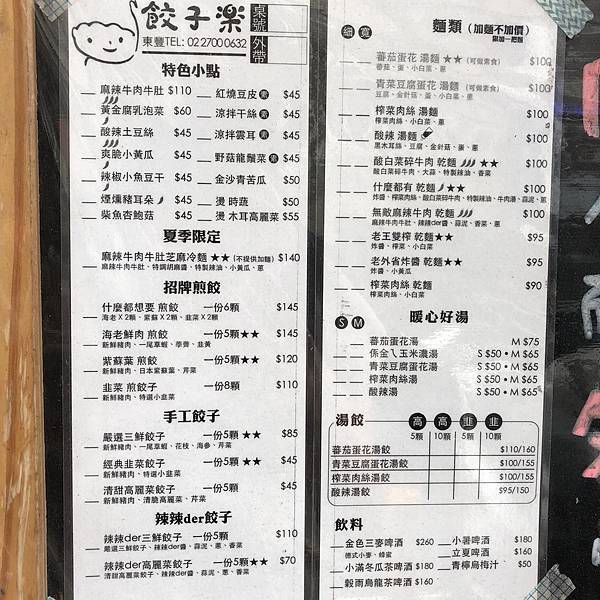 餃子樂
桌號
外帶
東豐TEL: 02 2700 0632
特色小點
麻辣牛肉牛肚 $110
紅燒豆皮 素 $45
黃金腐乳泡菜 $60
涼拌干絲 素 $45
酸辣土豆絲 $45
涼拌雲耳 素 $45
爽脆小黃瓜 $45
野菇龍鬚菜 素 $45
辣椒小魚豆干 $45
金沙青苦瓜 $50
煙燻豬耳朵 $45
燙 時蔬 $50
柴魚杏鮑菇 $45
燙 木耳高麗菜 $55
夏季限定
麻辣牛肉牛肚芝麻冷麵 ★★ (不提供加麵) $140
麻辣牛肉牛肚、特調胡麻醬、特製辣油、小黃瓜、蔥
招牌煎餃
什麼都想要 煎餃 一份6顆 $145
海老 X 2顆、紫蘇 X 2顆、韭菜 X 2顆
海老鮮肉 煎餃 一份5顆★★ $145
新鮮豬肉、一尾草蝦、荸薺、韭黃
紫蘇葉 煎餃 一份5顆★★ $120
新鮮豬肉、日本紫蘇葉、芹菜
韭菜 煎餃子 一份8顆 $110
新鮮豬肉、特選小韭菜
手工餃子
嚴選三鮮餃子 一份5顆 ★★ $85
新鮮豬肉、一尾草蝦、花枝、海參、芹菜
經典韭菜餃子 一份5顆 ★★ $45
新鮮豬肉、特選小韭菜
清甜高麗菜餃子 一份5顆 $45
新鮮豬肉、清脆高麗菜、芹菜
辣辣der餃子
辣辣der三鮮餃子 一份5顆 $110
嚴選三鮮餃子、辣辣der醬、蒜泥、蔥、香菜
辣辣der高麗菜餃子 一份5顆★★ $70
清甜高麗菜餃子、辣辣der醬、蒜泥、蔥、香菜
細 寬 麵類 (加麵不加價)
限加一把麵
蕃茄蛋花 湯麵 ★★ (可做素食) $100
蕃茄、蛋、小白菜、蔥
青菜豆腐蛋花 湯麵 (可做素食) $100
豆腐、金針菇、蛋、小白菜、蔥
榨菜肉絲 湯麵 $100
榨菜肉絲、小白菜、蔥
酸辣 湯麵 $100
黑木耳絲、豆腐、金針菇、蛋、蔥
酸白菜碎牛肉 乾麵 ★★ $100
酸白菜碎牛肉、大蒜、特製辣油、香菜
什麼都有 乾麵 ★★ $100
炸醬、榨菜肉絲、酸白菜碎牛肉、特製辣油、牛肉湯、蒜泥、蔥
無敵麻辣牛肉 乾麵 $100
麻辣牛肉牛肚、辣辣der醬、蒜泥、香菜、蔥
老王雙榨 乾麵 ★★ $95
炸醬、榨菜、小白菜
老外省炸醬 乾麵★★ $95
炸醬、小黃瓜
榨菜肉絲 乾麵 $90
榨菜肉絲、小白菜
S M 暖心好湯
蕃茄蛋花湯 M $75
係金ㄟ玉米濃湯 S $50 • M $65
青菜豆腐蛋花湯 S $50 • M $65
榨菜肉絲湯 S $50 • M $65
酸辣湯 S $50 • M $65
湯餃 高 高 韭 韭
5顆 10顆 5顆 10顆
蕃茄蛋花湯餃 $110/160
青菜豆腐蛋花湯餃 $100/155
榨菜肉絲湯餃 $100/155
酸辣湯餃 $95/150
飲料
金色三麥啤酒 $260
小暑啤酒 $180
德式小麥、蜂蜜
立夏啤酒 $160
小滿冬瓜茶啤酒 $180
青檸烏梅汁 $50
穀雨烏龍茶啤酒 $160